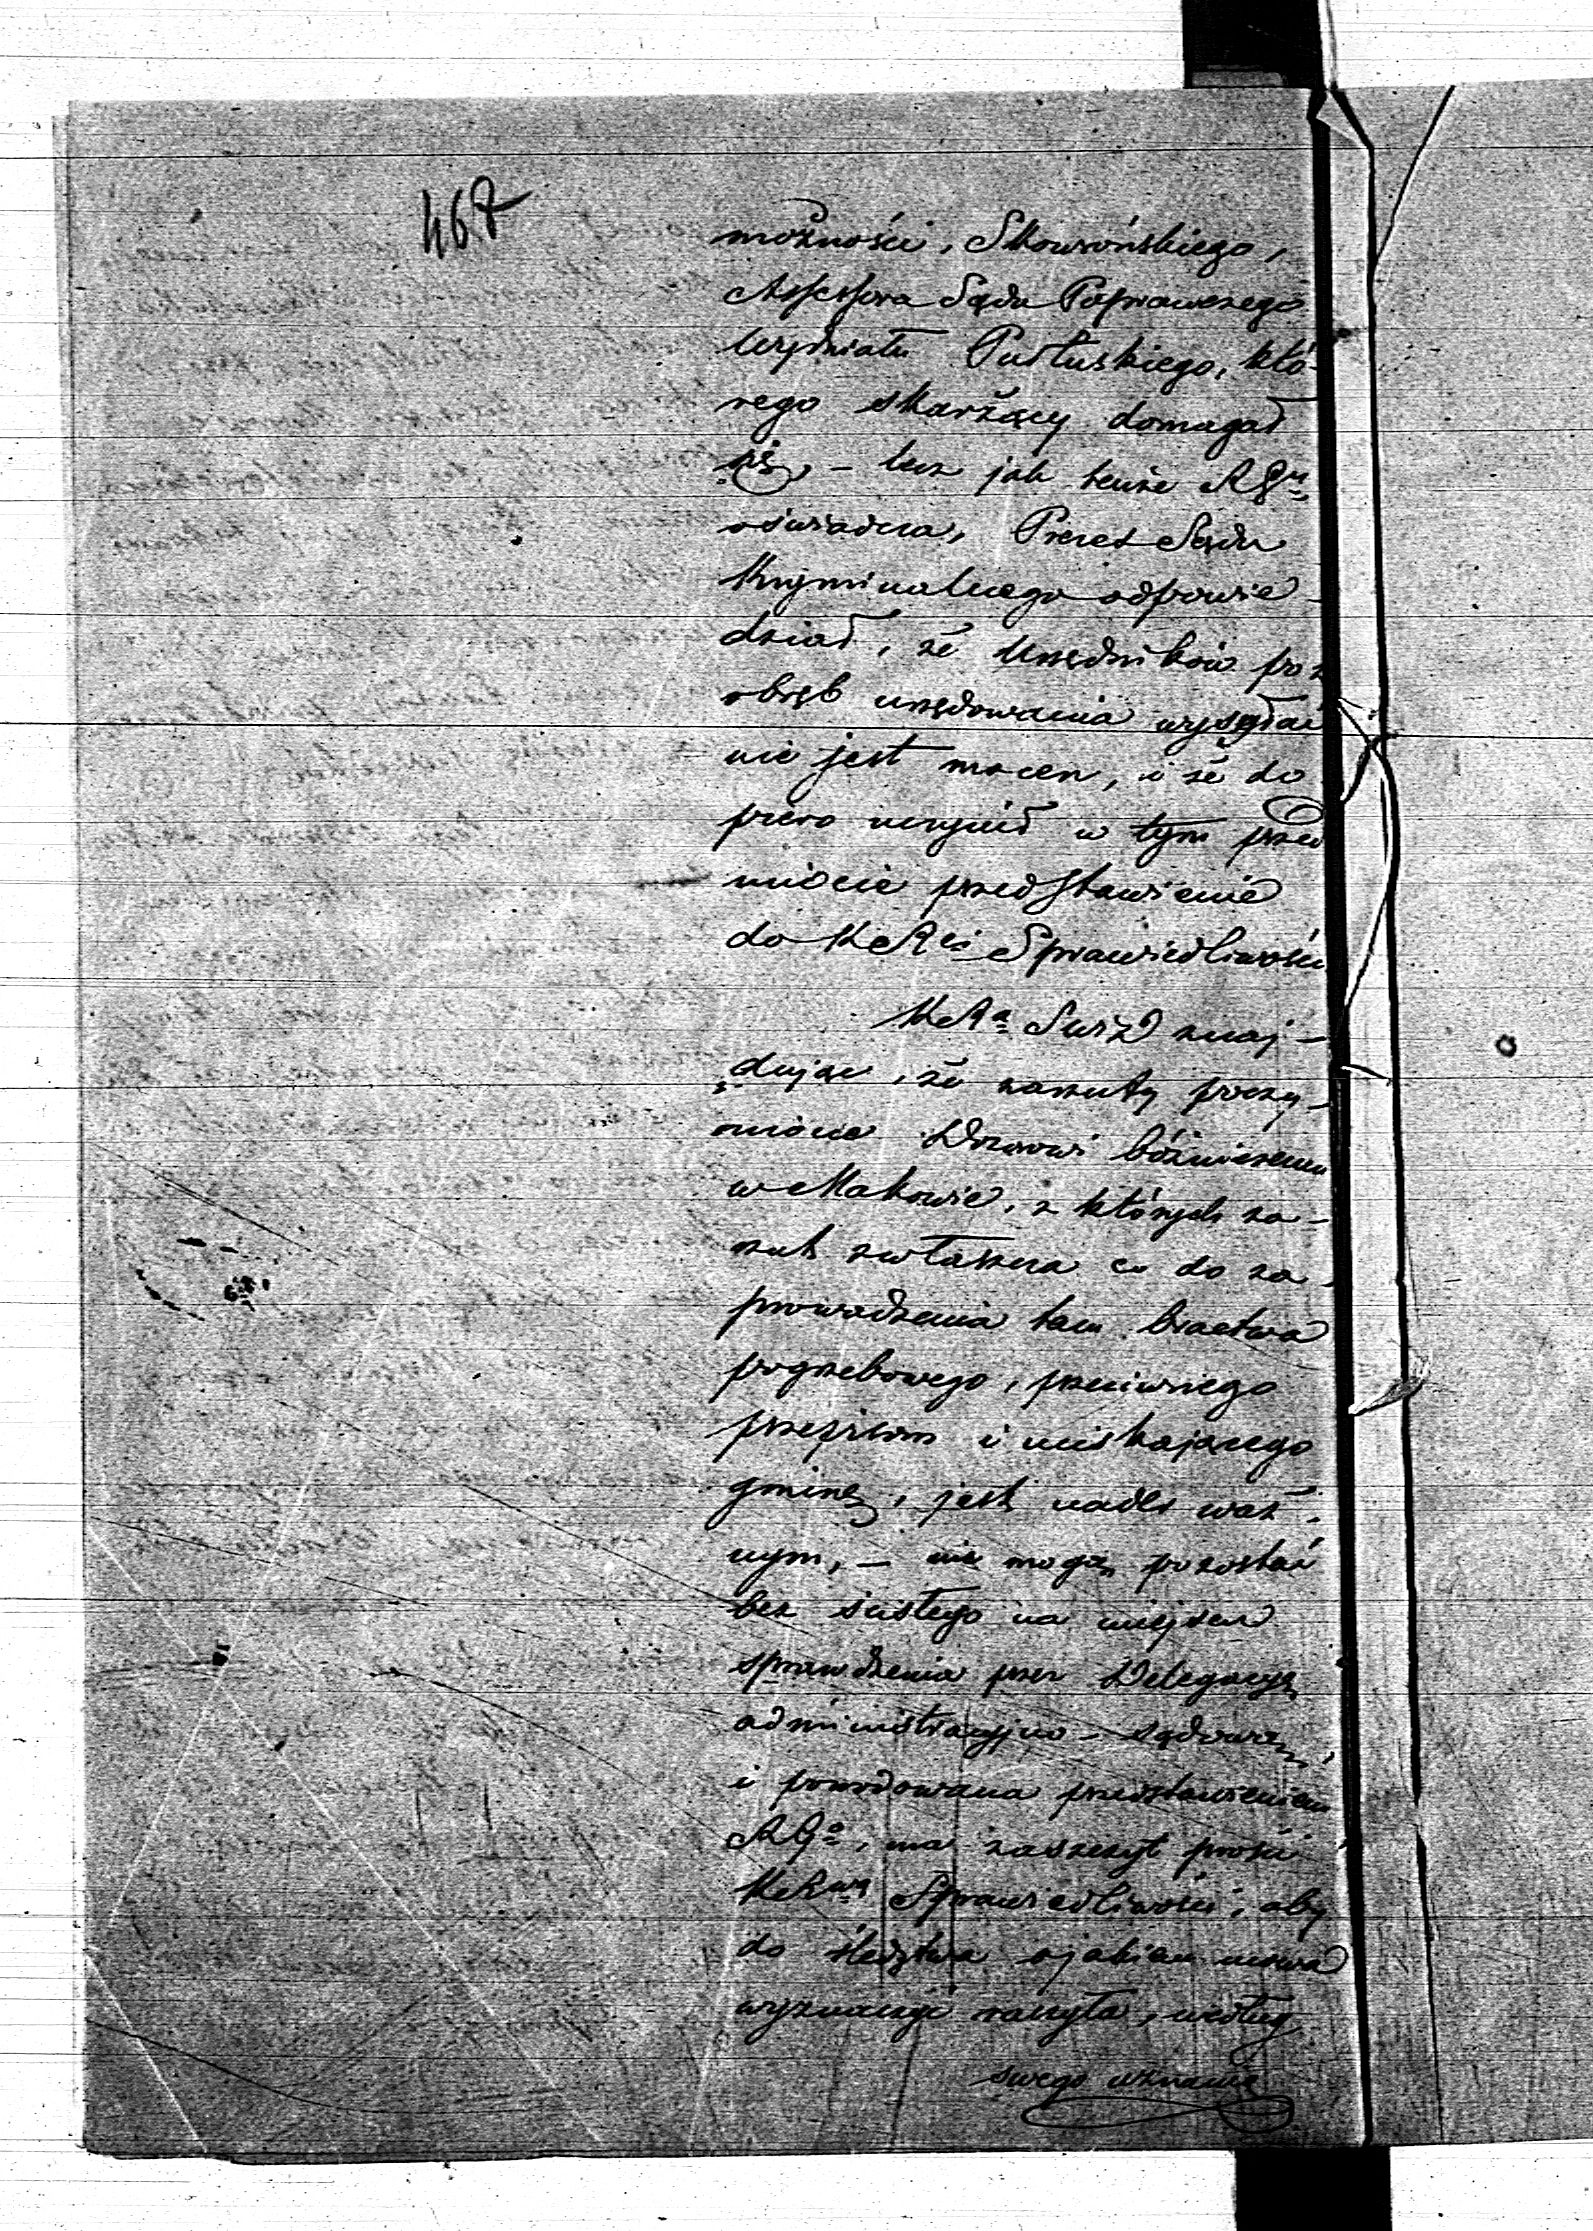 467
możności, Skowrońskiego,
Assessora Sądu Poprawczego
Wydziału Pułtuskiego, któ-
rego skarżący domagał
się, – lecz jak tenże RGu
oświadcza, Prezes Sądu
Kryminalnego odpowie-
dział, że Urzędników poz
obręb urzędowania wysyłać
nie jest mocen, i że do
piero uczynił w tym przed
miocie przedstawienie
do KRci Sprawiedliwości
KRa SWiD znaj-
dując, że zarzuty poczy-
nione Dozorowi bóżniczemu
w Makowie, z których za-
rzut zwłaszcza co do za-
prowadzenia tam bractwa
pogrzebowego, przeciwnego
przepisom i uciskającego
gminę, jest nader waż-
nym, – nie mogą pozostać
bez ścisłego na miejscu
sprawdzenia przez Delegacyą
administracyjno-sądową,
i powodowana przedstawieniem
RGo, ma zaszczyt prosić
KRwą Sprawiedliwości, aby
do śledztwa o jakiem mowa
wyznaczyć raczyła, według
swego uznania